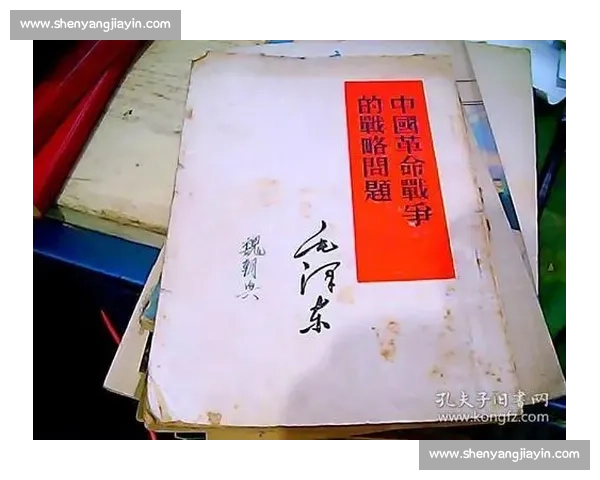 www.shenyangjiayin.com
中國革命戰爭
的戰略問題
毛泽东
魏朝興
孔夫子旧書网
www.kongfz.com
www.shenyangjiayin.com